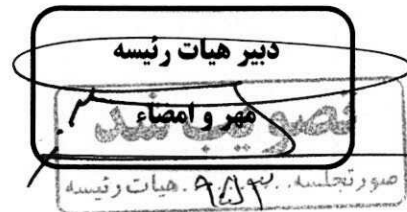 دبیر هیات رئیسه
مهر و امضاء
تصویب شد
صورتجلسه .. هیات رئیسه